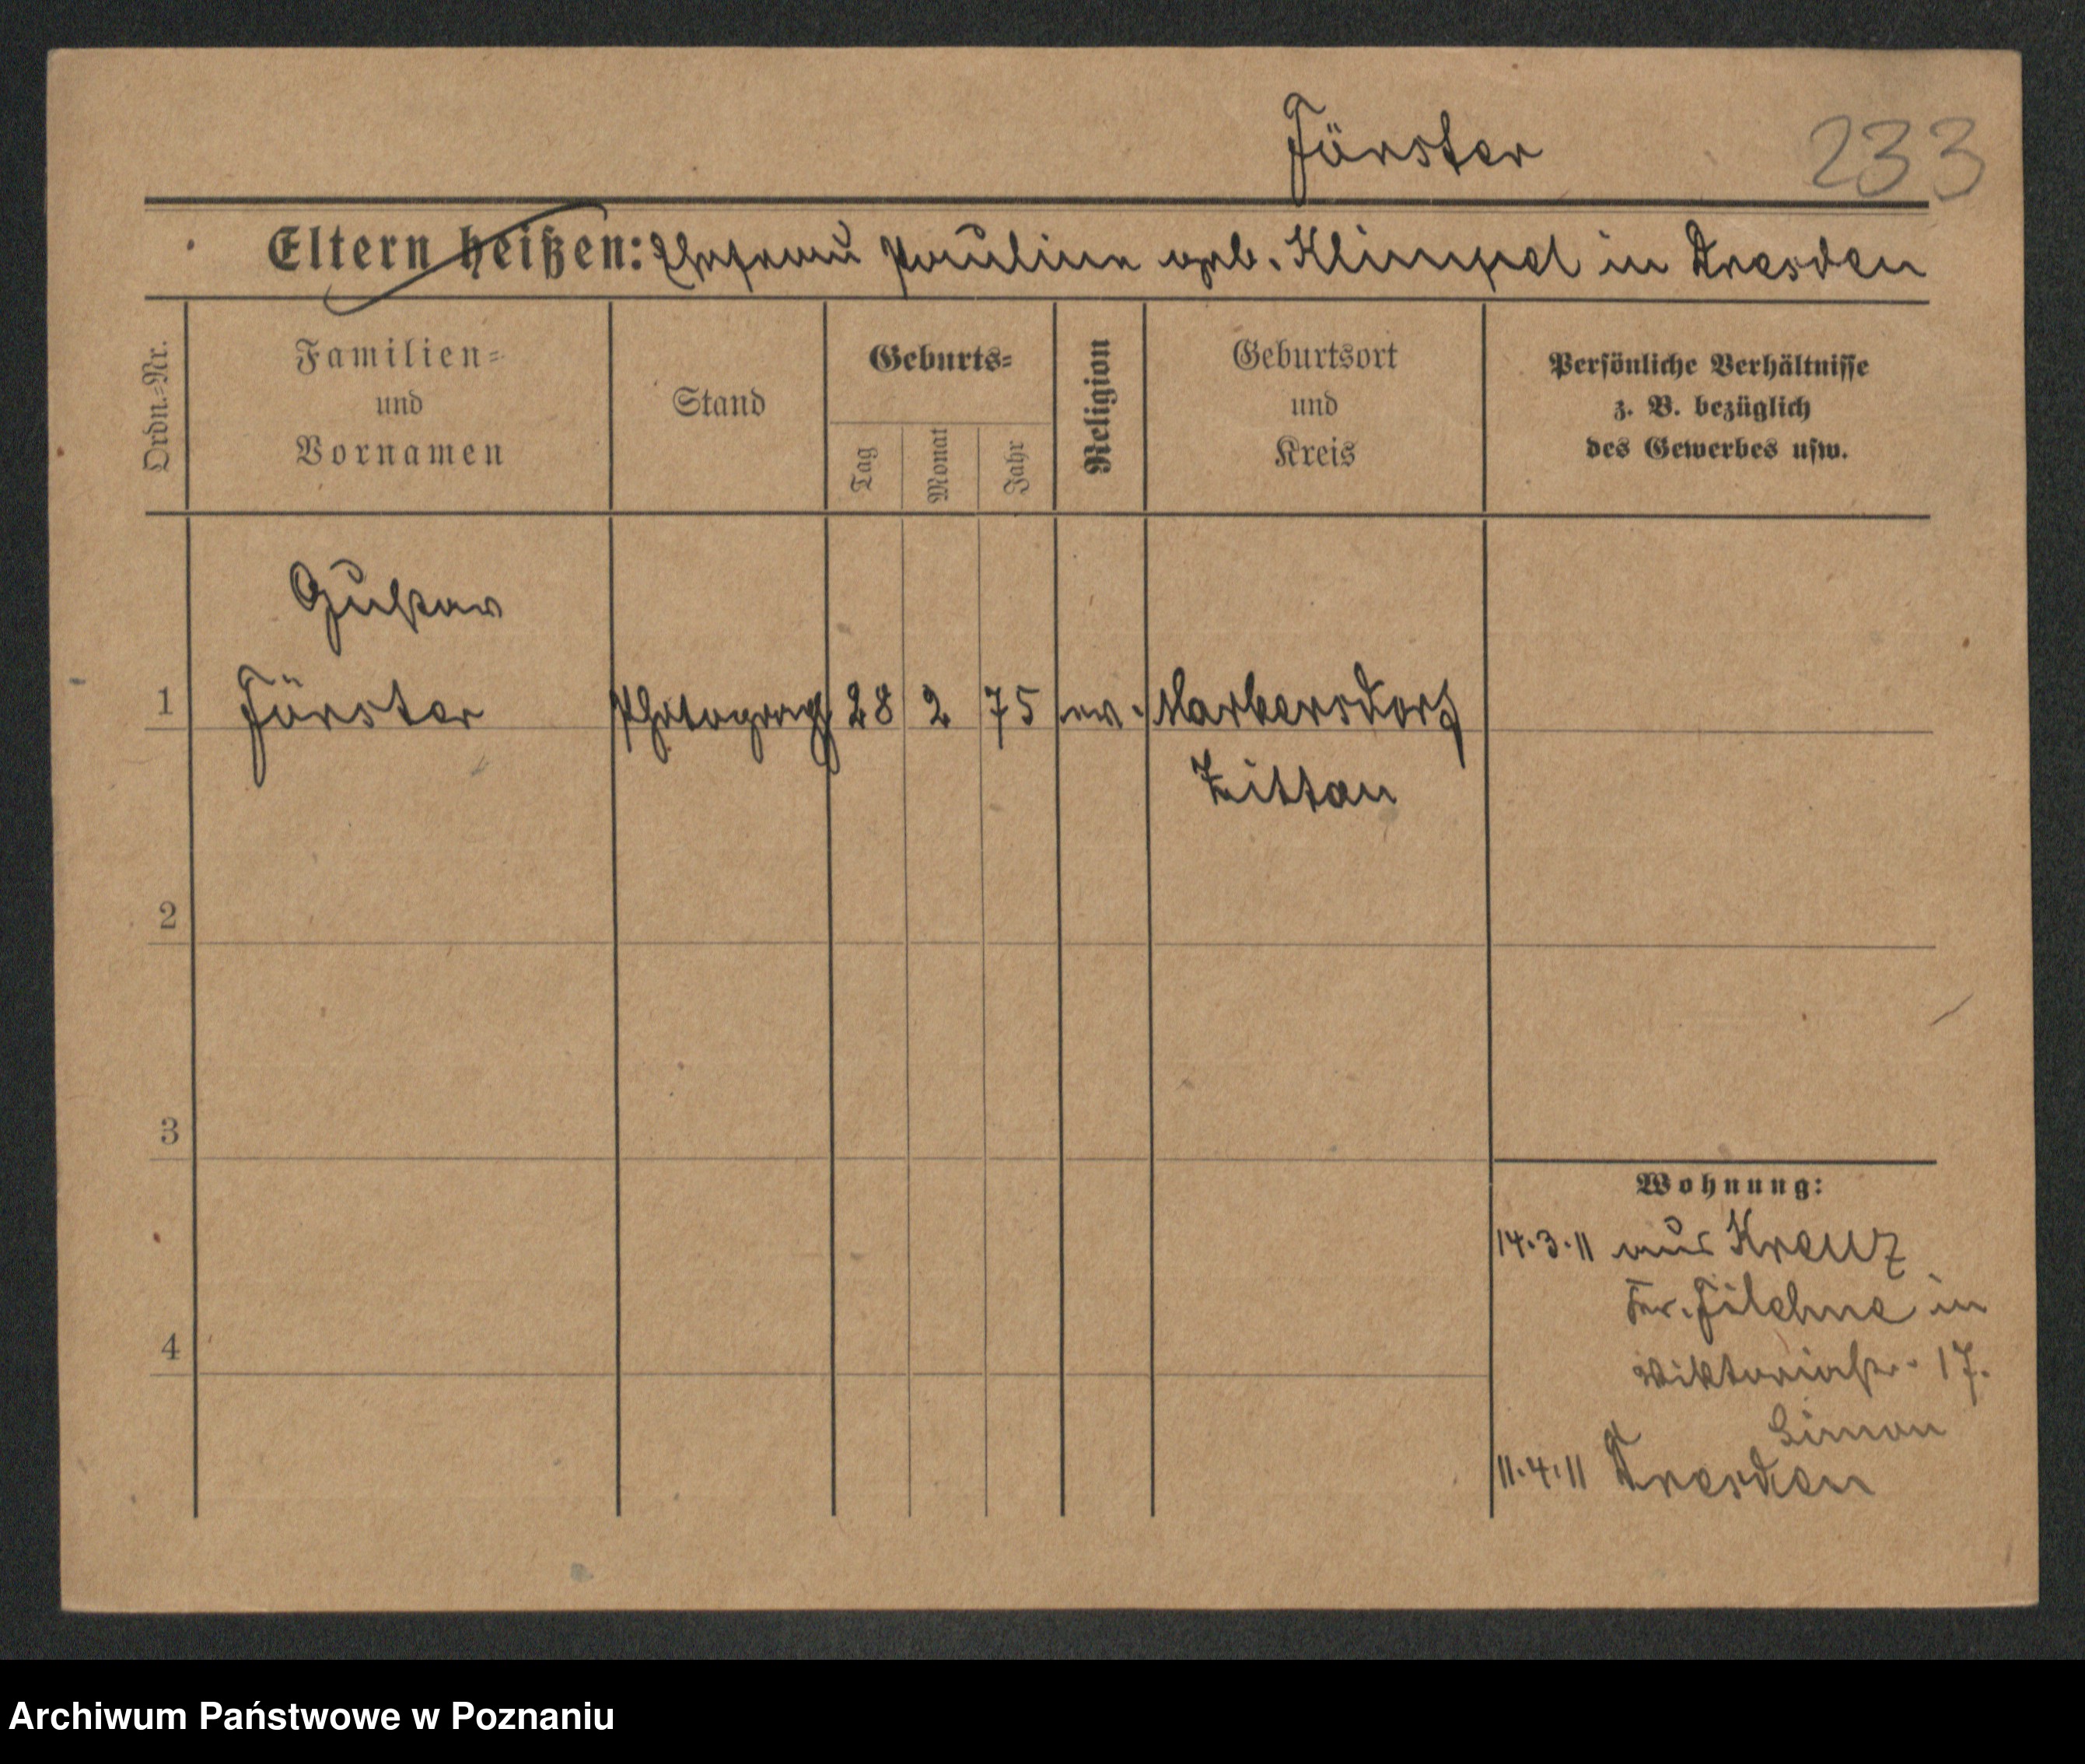 Förster 233
Eltern heißen: Ehefrau Pauline geb. Klimpel in Dresden
Ordn.=Nr.
Familien=
und
Vornamen
Stand
Geburts=
Tag
Monat
Jahr
Religion
Geburtsort
und
Kreis
Persönliche Verhältnisse
z. B. bezüglich
des Gewerbes usw.
Gustav
1 Förster Photograph 28 2 75 ev. Markersdorf
Zittau
2
3
4
Wohnung:
14.3.11 aus Kreuz
Kr. Filehne in
Viktoriastr. 17.
Simon
11.4.11 Dresden
Archiwum Państwowe w Poznaniu